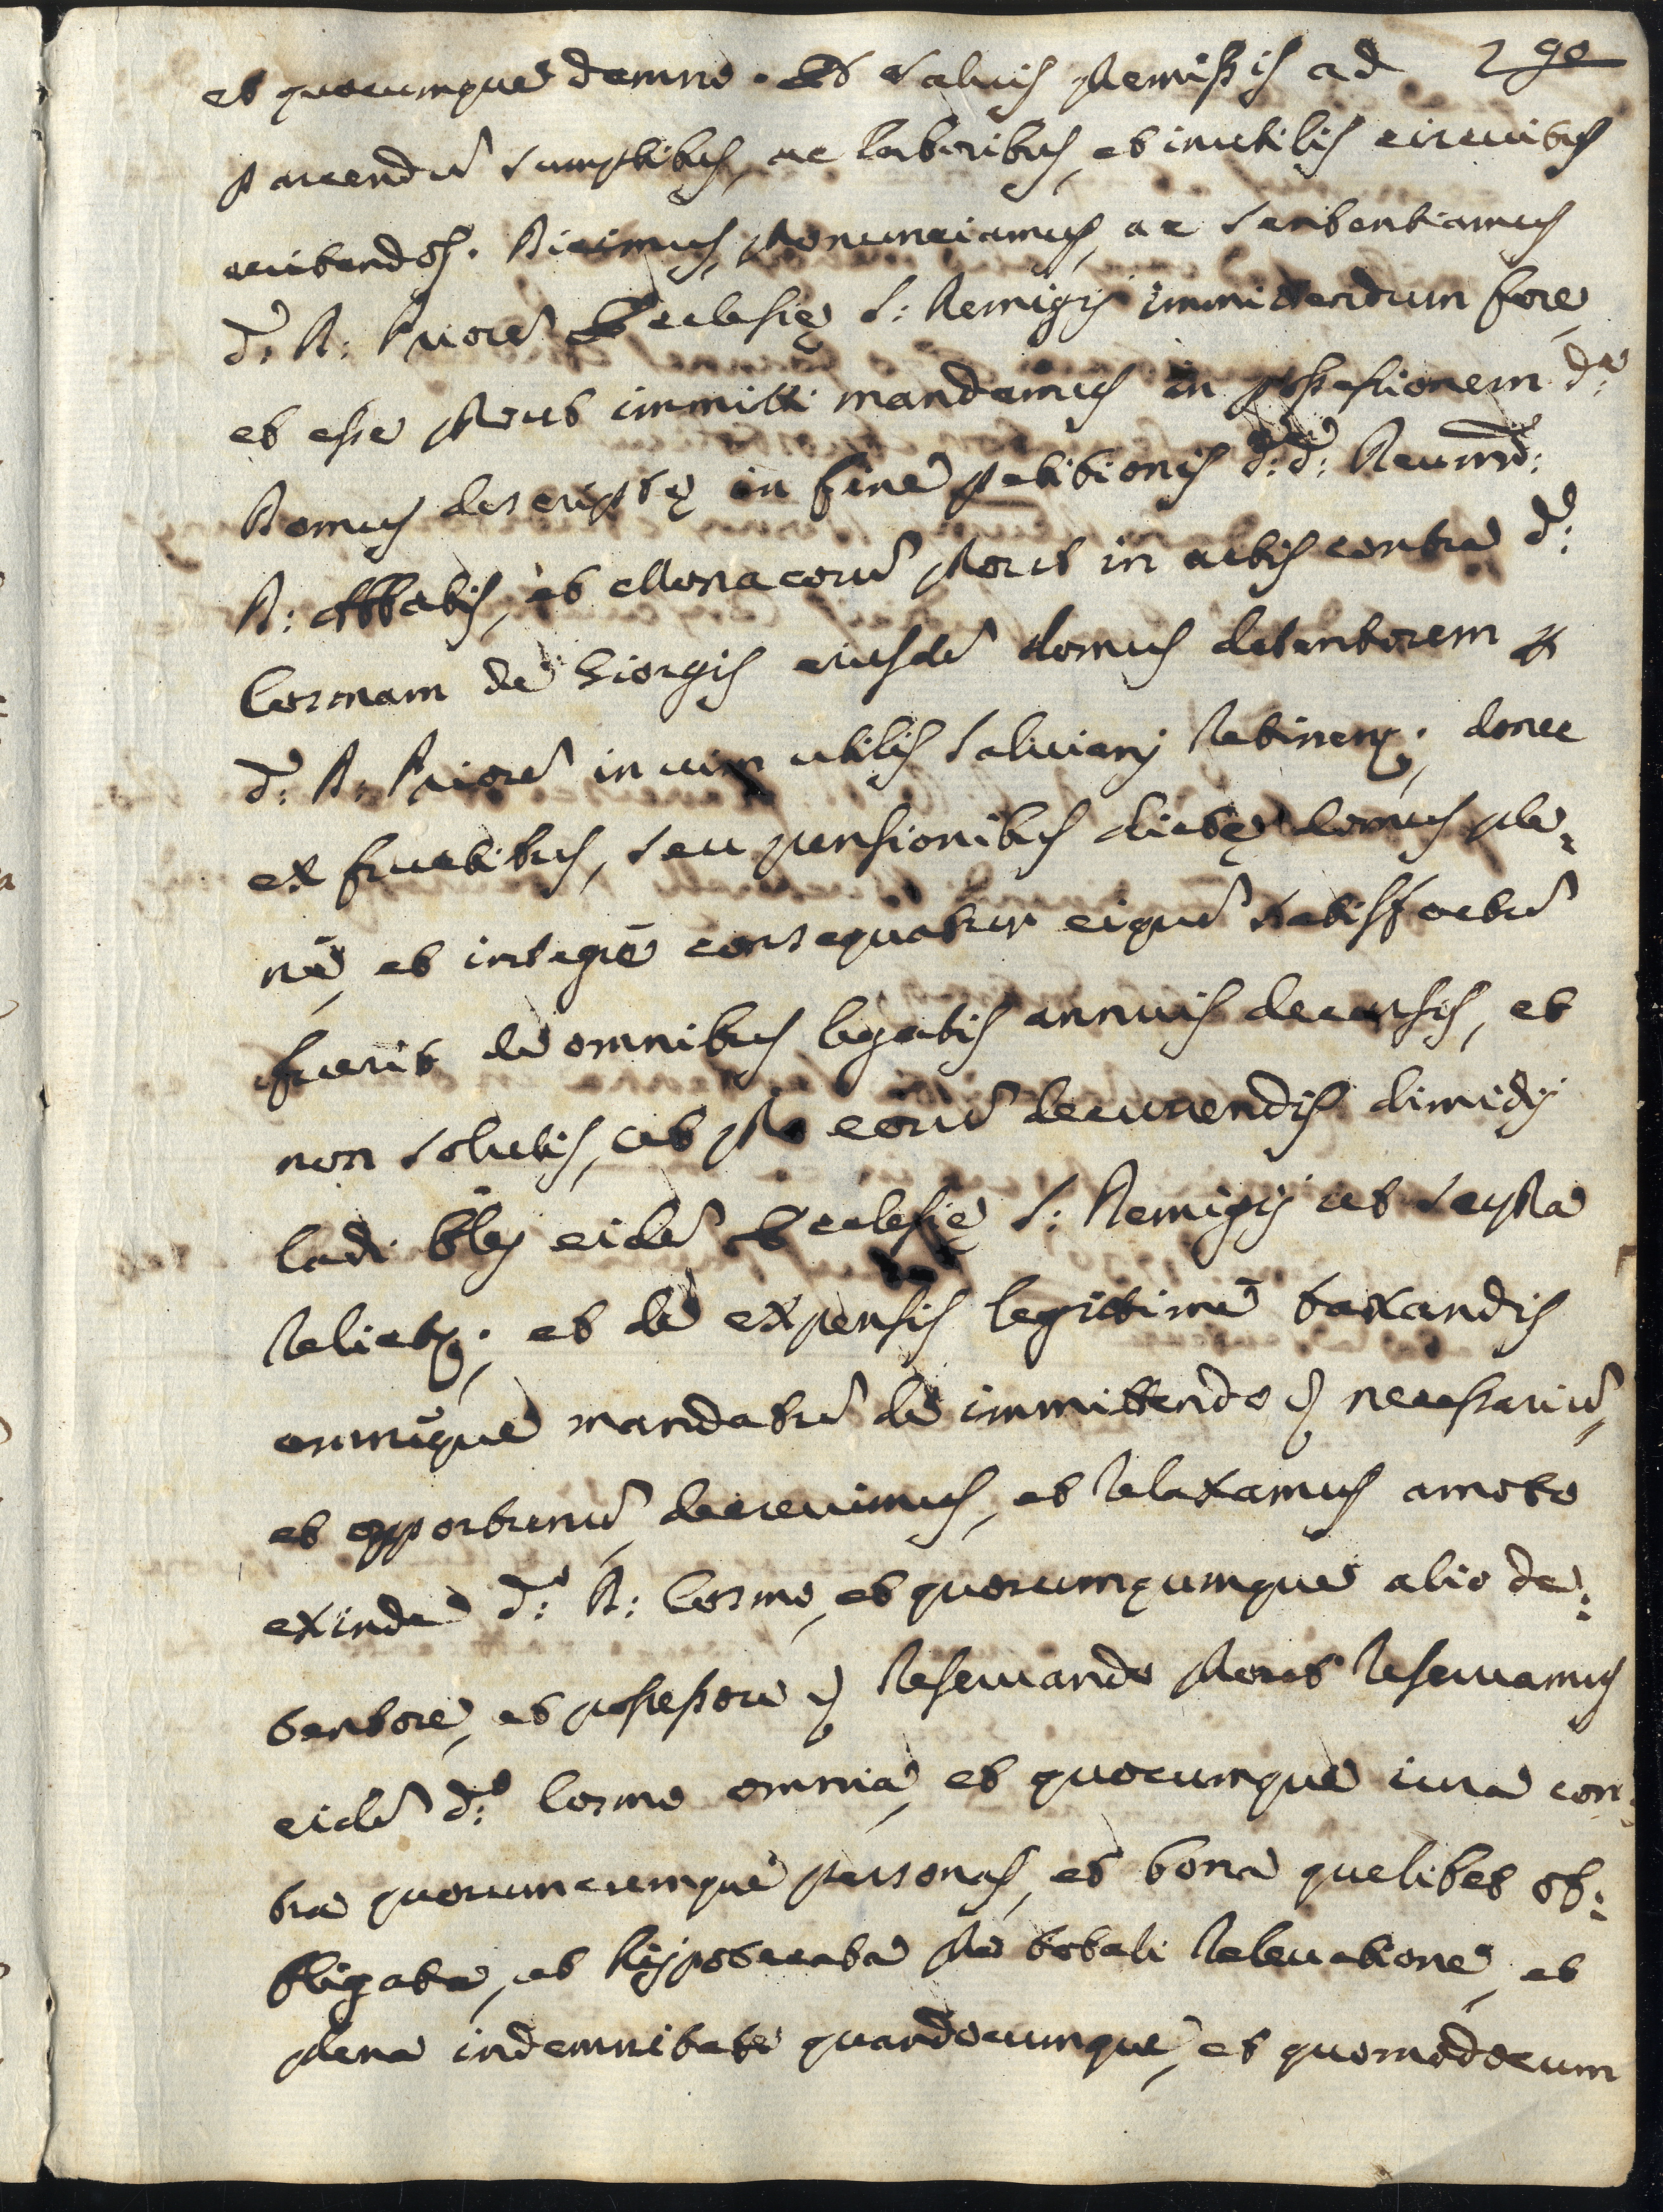 290
et quocumque damno. Et salvis premissis ad
parcendũ sumptibus, ac laboribus, et inutilis circuitus
evitandos. Dicimus, pronunciamus, ac sententiamus
d: R: Priorẽ Ecclesię S: Remigij immittendum fore,
et esse prout immitti mandamus in possessionem d:ę
Domus descriptę in fine petitionis d: d: Reumd:
R: Abbatis, et Monacorũ prout in actis contra d:
Cosmam de Giorgis eiusdẽ domus detentorem p
d: R: Priorẽ in vim utilis salviani retinen; donec
ex fructibus, seu pensionibus dictę domus ple:
nè, et integrè consequatur eique satisfactũ
fuerit de omnibus legatis annuis decursis, et
non solutis, et pro eorũ decurrendis dimidij
ladi olei eidẽ Ecclesię S: Remigij ut supra
relict; et de expensis legittimè taxandis
omnẽque mandatũ de immittendo necessariũ,
et opportunũ decrevimus, et relaxamus amoto
exinde d:o R: Cosmo, et quocumqumque alio de:
tentore, et possessore reservando prout reservamus
eidẽ d:o Cosmo omnia, et quecumque iura con:
tra quoscumcumque personas, et bona quelibet ob:
bligata, et hijpotecata pro totali relevatione, et
plena indemnitate quandocumque, et quomodocum